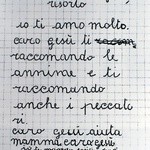 risorto
io ti amo molto.
caro gesù ti
raccomando le
annime e ti
raccomando
anche i peccato
ri.
caro gesù aiuta
mamma, caro gesù